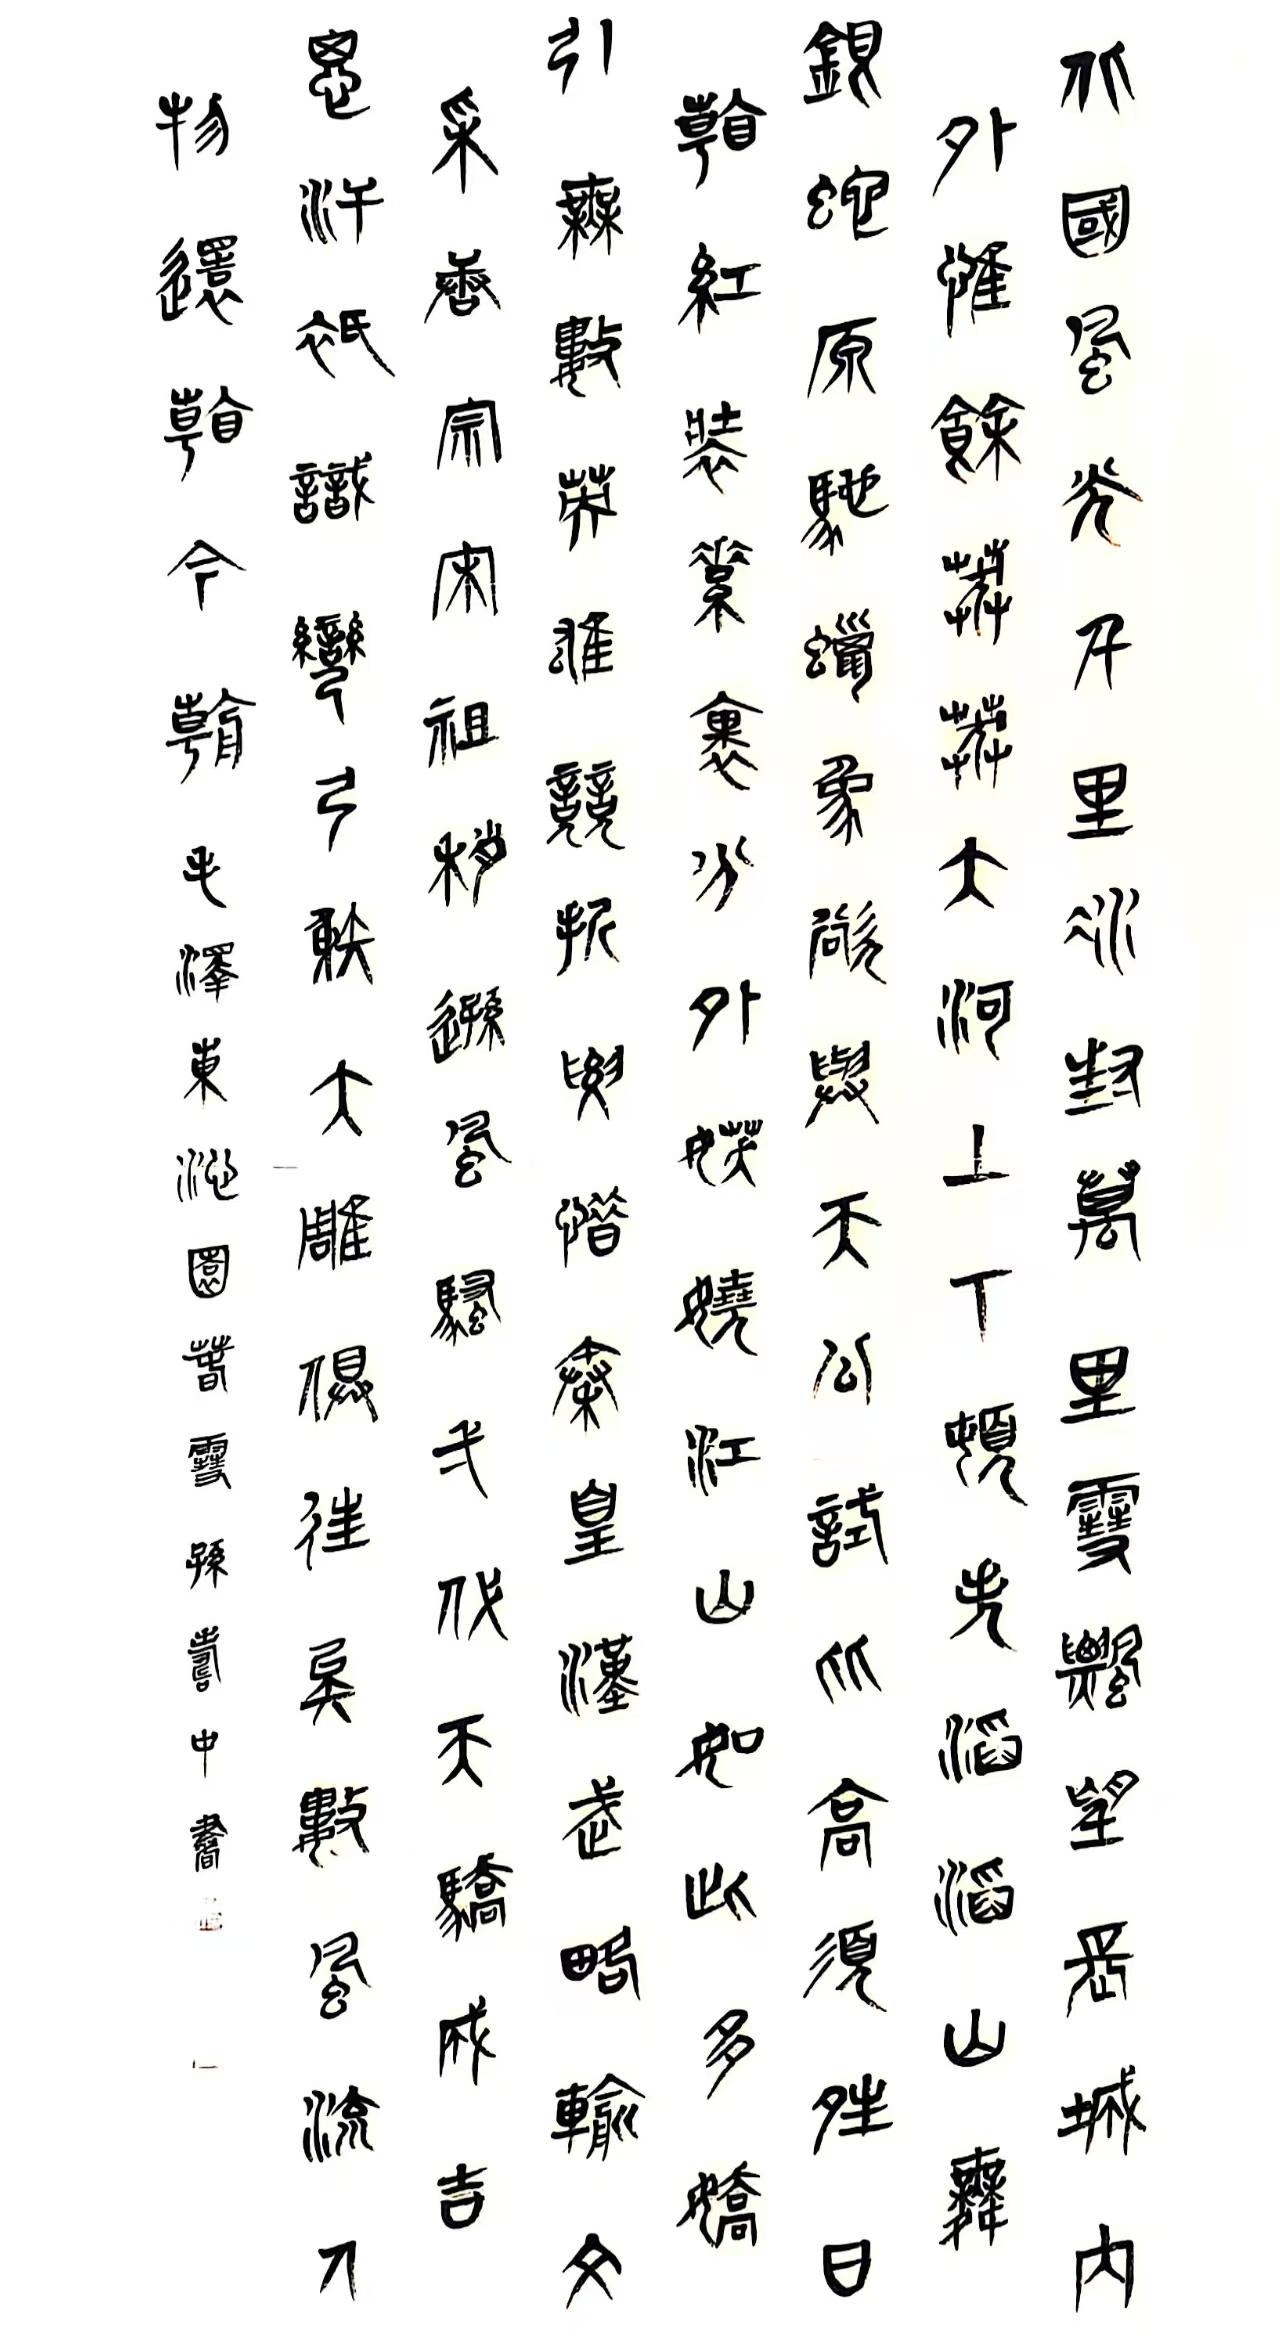 北國風光千里冰封萬里雪飄望長城內
外惟餘莽莽大河上下頓失滔滔山舞
銀蛇原馳蠟象欲與天公試比高須晴日
看紅裝素裹分外妖嬈江山如此多嬌
引無數英雄競折腰惜秦皇漢武略輸文
采唐宗宋祖稍遜風騷弌代天驕成吉
思汗祇識彎弓射大雕俱往矣數風流人
物還看今朝毛澤東沁園春雪孫中書